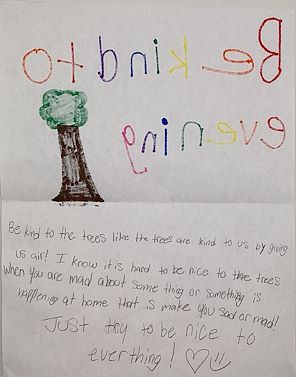 Be kind to
evening
Be kind to the trees like the trees are kind to us by giving
us air! I know it is hard to be nice to the trees
when you are mad about some thig or something is
happening at home that is make you sad or mad!
Just try to be nice to
everthing!